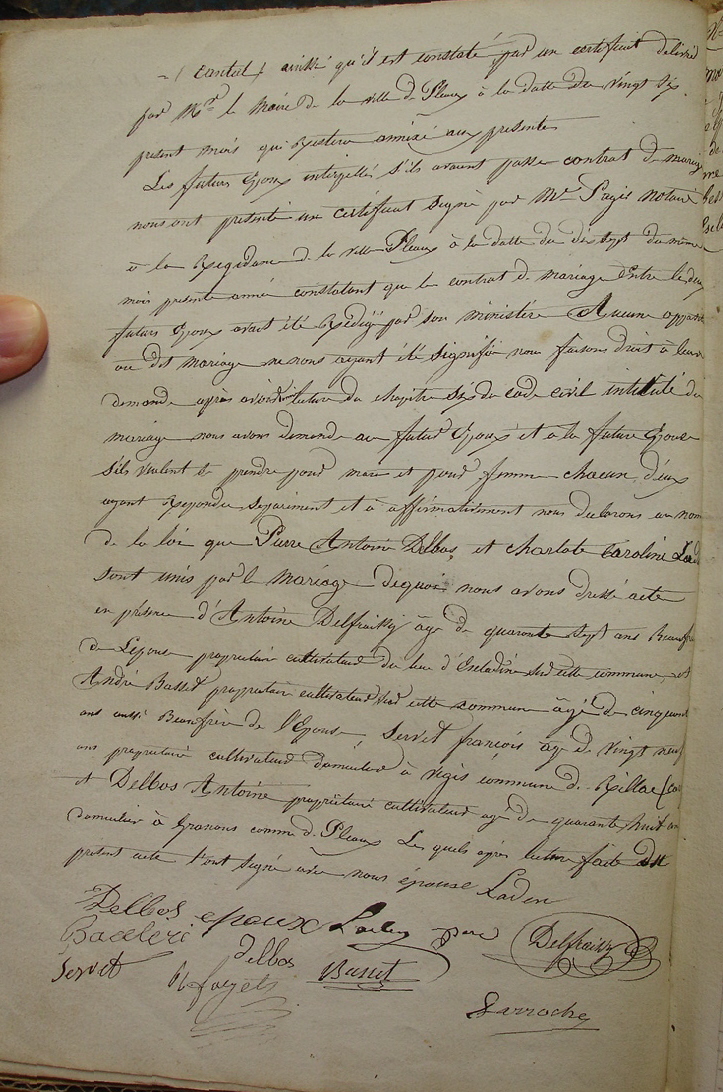 (Cantal) ainssi qu'il est constaté par un certificat délivré
par Mr le Maire de la ville de Pleaux à la datte du vingt six
present mois qui Restera annixé aux presentes
Les futurs Epoux interpellés s'ils avaient passé contrat de mariage
nous ont presenté un certificat signé par Me Pagis notaire
à la Residance de la ville Pleaux à la datte du dix sept du même
mois presente année constatant que le contrat de mariage Entre les deux
futurs Epoux avait été Rédigé par son ministère Aucune opposit
au dit mariage ne nous ayant été signifié nous faisons droit à leur
demande après avoir lecture du chapitre six du code civil intitulé du
mariage nous avons demandé au futur Epoux et à la future Epouse
s'ils veulent se prendre pour mari et pour femme chacun d'eux
ayant Repondu separiment et à affirmativement nous declarons au nom
de la loi que Pierre Antoine Delbos et Charlote Caroline Lad
sont unis par le mariage dequoi nous avons dressé acte
en présence d'Antoine Delfraissy âgé de quarante sept ans Beaufre
de L'épouse propriétaire cultivateur du lieu d' sur cette commune et
André Basset propriétaire cultivateur sur cette commune âgé de cinquante
ans aussi Beaufrère de l'Epouse, Servet françois âgé de vingt neuf
ans propriétaire cultivateur domicilié à Végis commune de (Can
et Delbos Antoine propriétaire cultivateur agé de quarante huit an
domicilié à Granous comme d. Pleaux Les quels après lecture faite du
present acte l'ont signé avec nous épouse Laden
Delbos epoux père Delfraissy
delbos Basset
Servet
Larroche